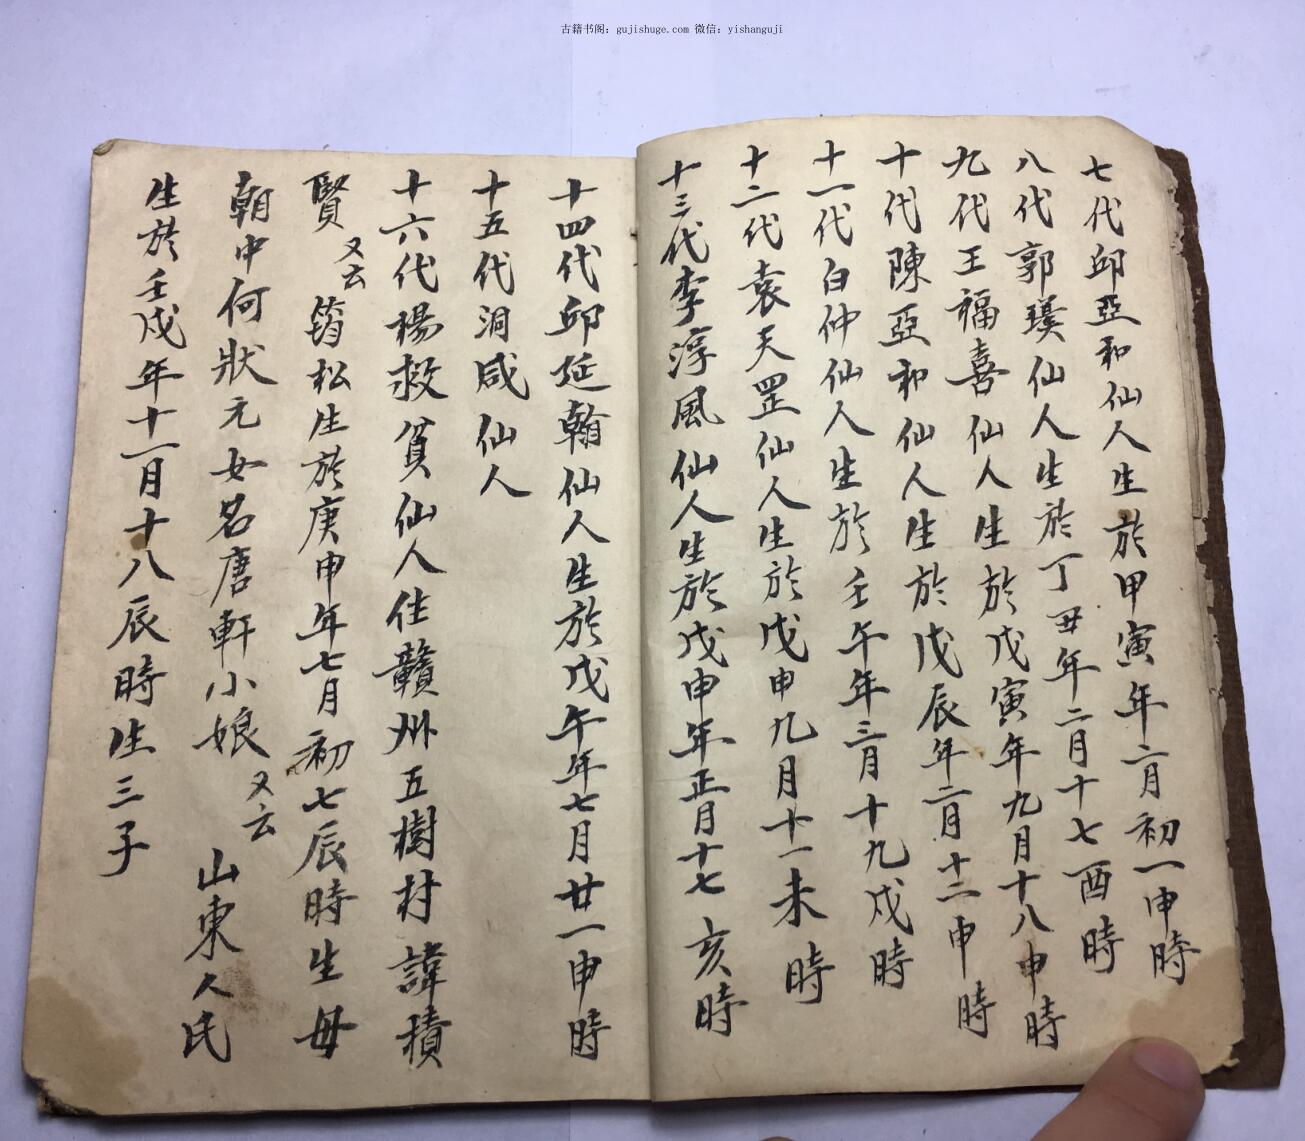 古籍书阁：gujishuge.com 微信：yishanguji
七代邱亞和仙人生於甲寅年二月初一申時
八代郭璞仙人生於丁丑年二月十七酉時
九代王福喜仙人生於戊寅年九月十八申時
十代陳亞和仙人生於戊辰年二月十二申時
十一代白仲仙人生於壬午年三月十九戍時
十二代袁天罡仙人生於戊申九月十一未時
十三代李淳風仙人生於戊申年正月十七亥時
十四代邱延翰仙人生於戊午年七月廿一申時
十五代洞咸仙人
十六代楊救貧仙人住贛州五樹村諱積
賢又云筠松生於庚申年七月初七辰時生母
朝中何狀元女名唐軒小娘又云山東人民
生於壬戍年十一月十八辰時生三子